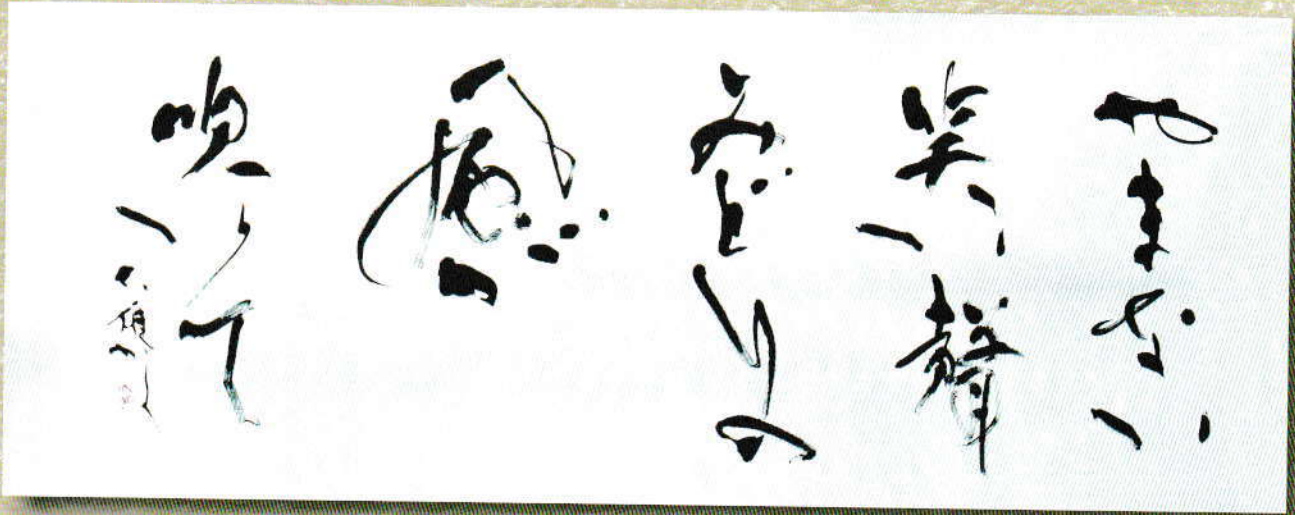 やまない
笑い聲
みどりの
風
吹いて